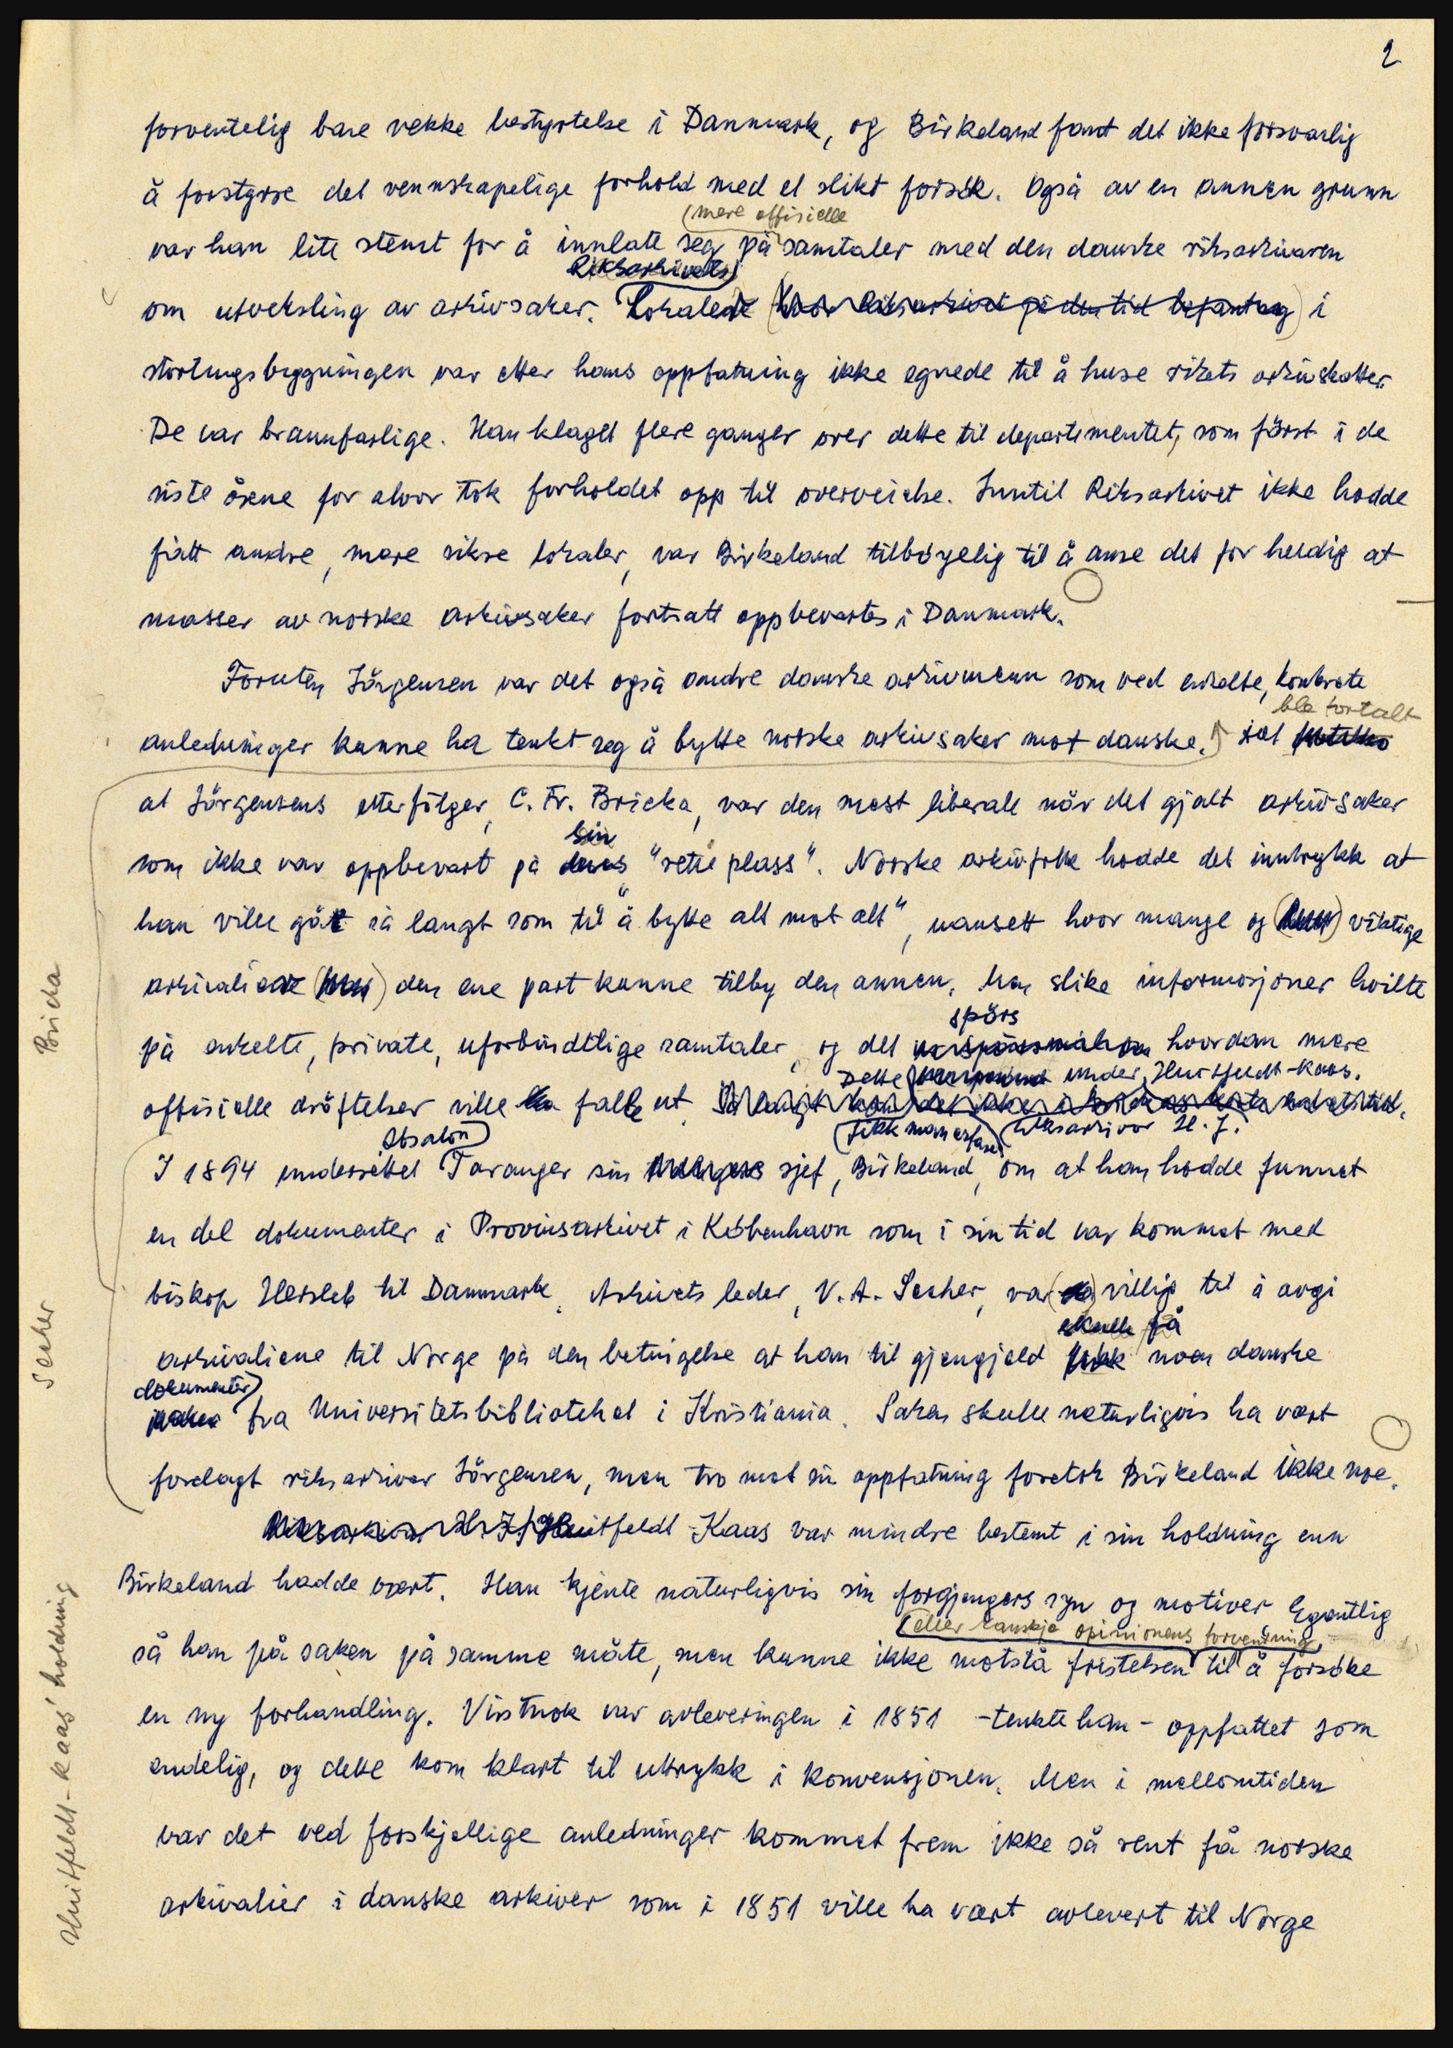 2
forventelig bare vekke bestyrtelse i Danmark, og Birkeland fant det ikke forsvarlig
å forstyrre det vennskapelige forhold med et slikt forsøk. Også av en annen grunn
(mere offisielle
var han lite stemt for å innlate seg på samtaler med den danske riksarkivaren
Riksarkivets
om utveksling av arkivsaker. Lokaler (hvor Riksarkivet på den tid befant seg) i
stortingsbygningen var etter hans oppfatning ikke egnede til å huse rikets arkivskatter.
De var brannfarlige. Han klaget flere ganger over dette til departementet, som först i de
siste årene for alvor tok forholdet opp til overveielse. Inntil Riksarkivet ikke hadde
fått andre, mere sikre lokaler, var Birkeland tilböyelig til å anse det for heldig at
masser av norske arkivsaker fortsatt oppbevartes i Danmark.
Foruten Jörgensen var det også andre danske arkivmenn som ved enkelte, konkrete
ble fortalt
anledninger kunne ha tenkt seg å bytte norske arkivsaker mot danske. Det
at Jörgensens etterfölger, C. Fr. Bricka, var den mest liberale når det gjalt arkivsaker
sin
som ikke var oppbevart på deres "rette plass". Norske arkivfolk hadde det inntrykk at
han ville gått så langt som til "å bytte alt mot alt", uansett hvor mange og (hvor) viktige
arkivalier den ene part kunne tilby den annen. Men slike informasjoner hvilte
spörs
på enkelte, private, uforbindtlige samtaler, og det er spörsmål om hvordan mere
Dette under Huitfeldt-Kaas.
offisielle dröftelser ville falle ut.
Absalon) (fikk man erfare (riksarkivar H. J.
I 1894 underrettet Taranger sin sjef, Birkeland, om at han hadde funnet
en del dokumenter i Provinsarkivet i København som i sin tid var kommet med
biskop Hersleb til Danmark. Arkivets leder, V. A. Secher, var villig til å avgi
skulle få
arkivaliene til Norge på den betingelse at han til gjengjeld fikk noen danske
dokumenter)
fra Universitetsbiblioteket i Kristiania. Saken skulle naturligvis ha vært
forelagt riksarkivar Jörgensen, men tro mot sin oppfatning foretok Birkeland ikke noe.
Riksarkivar H. J. Huitfeldt-Kaas var mindre bestemt i sin holdning enn
Birkeland hadde vært. Han kjente naturligvis sin forgjengers syn og motiver. Egentlig
(eller kanskje opinionens forventning)
så han på saken på samme måte, men kunne ikke motstå fristelsen til å försöke
en ny forhandling. Visstnok var avleveringen i 1851 - tenkte han - oppfattet som
endelig, og dette kom klart til uttrykk i konvensjonen. Men i mellomtiden
var det ved forskjellige anledninger kommet frem ikke så rent få norske
arkivalier i danske arkiver som i 1851 ville ha vært avlevert til Norge
Bricka
Secher
Huitfeldt-Kaas' holdning